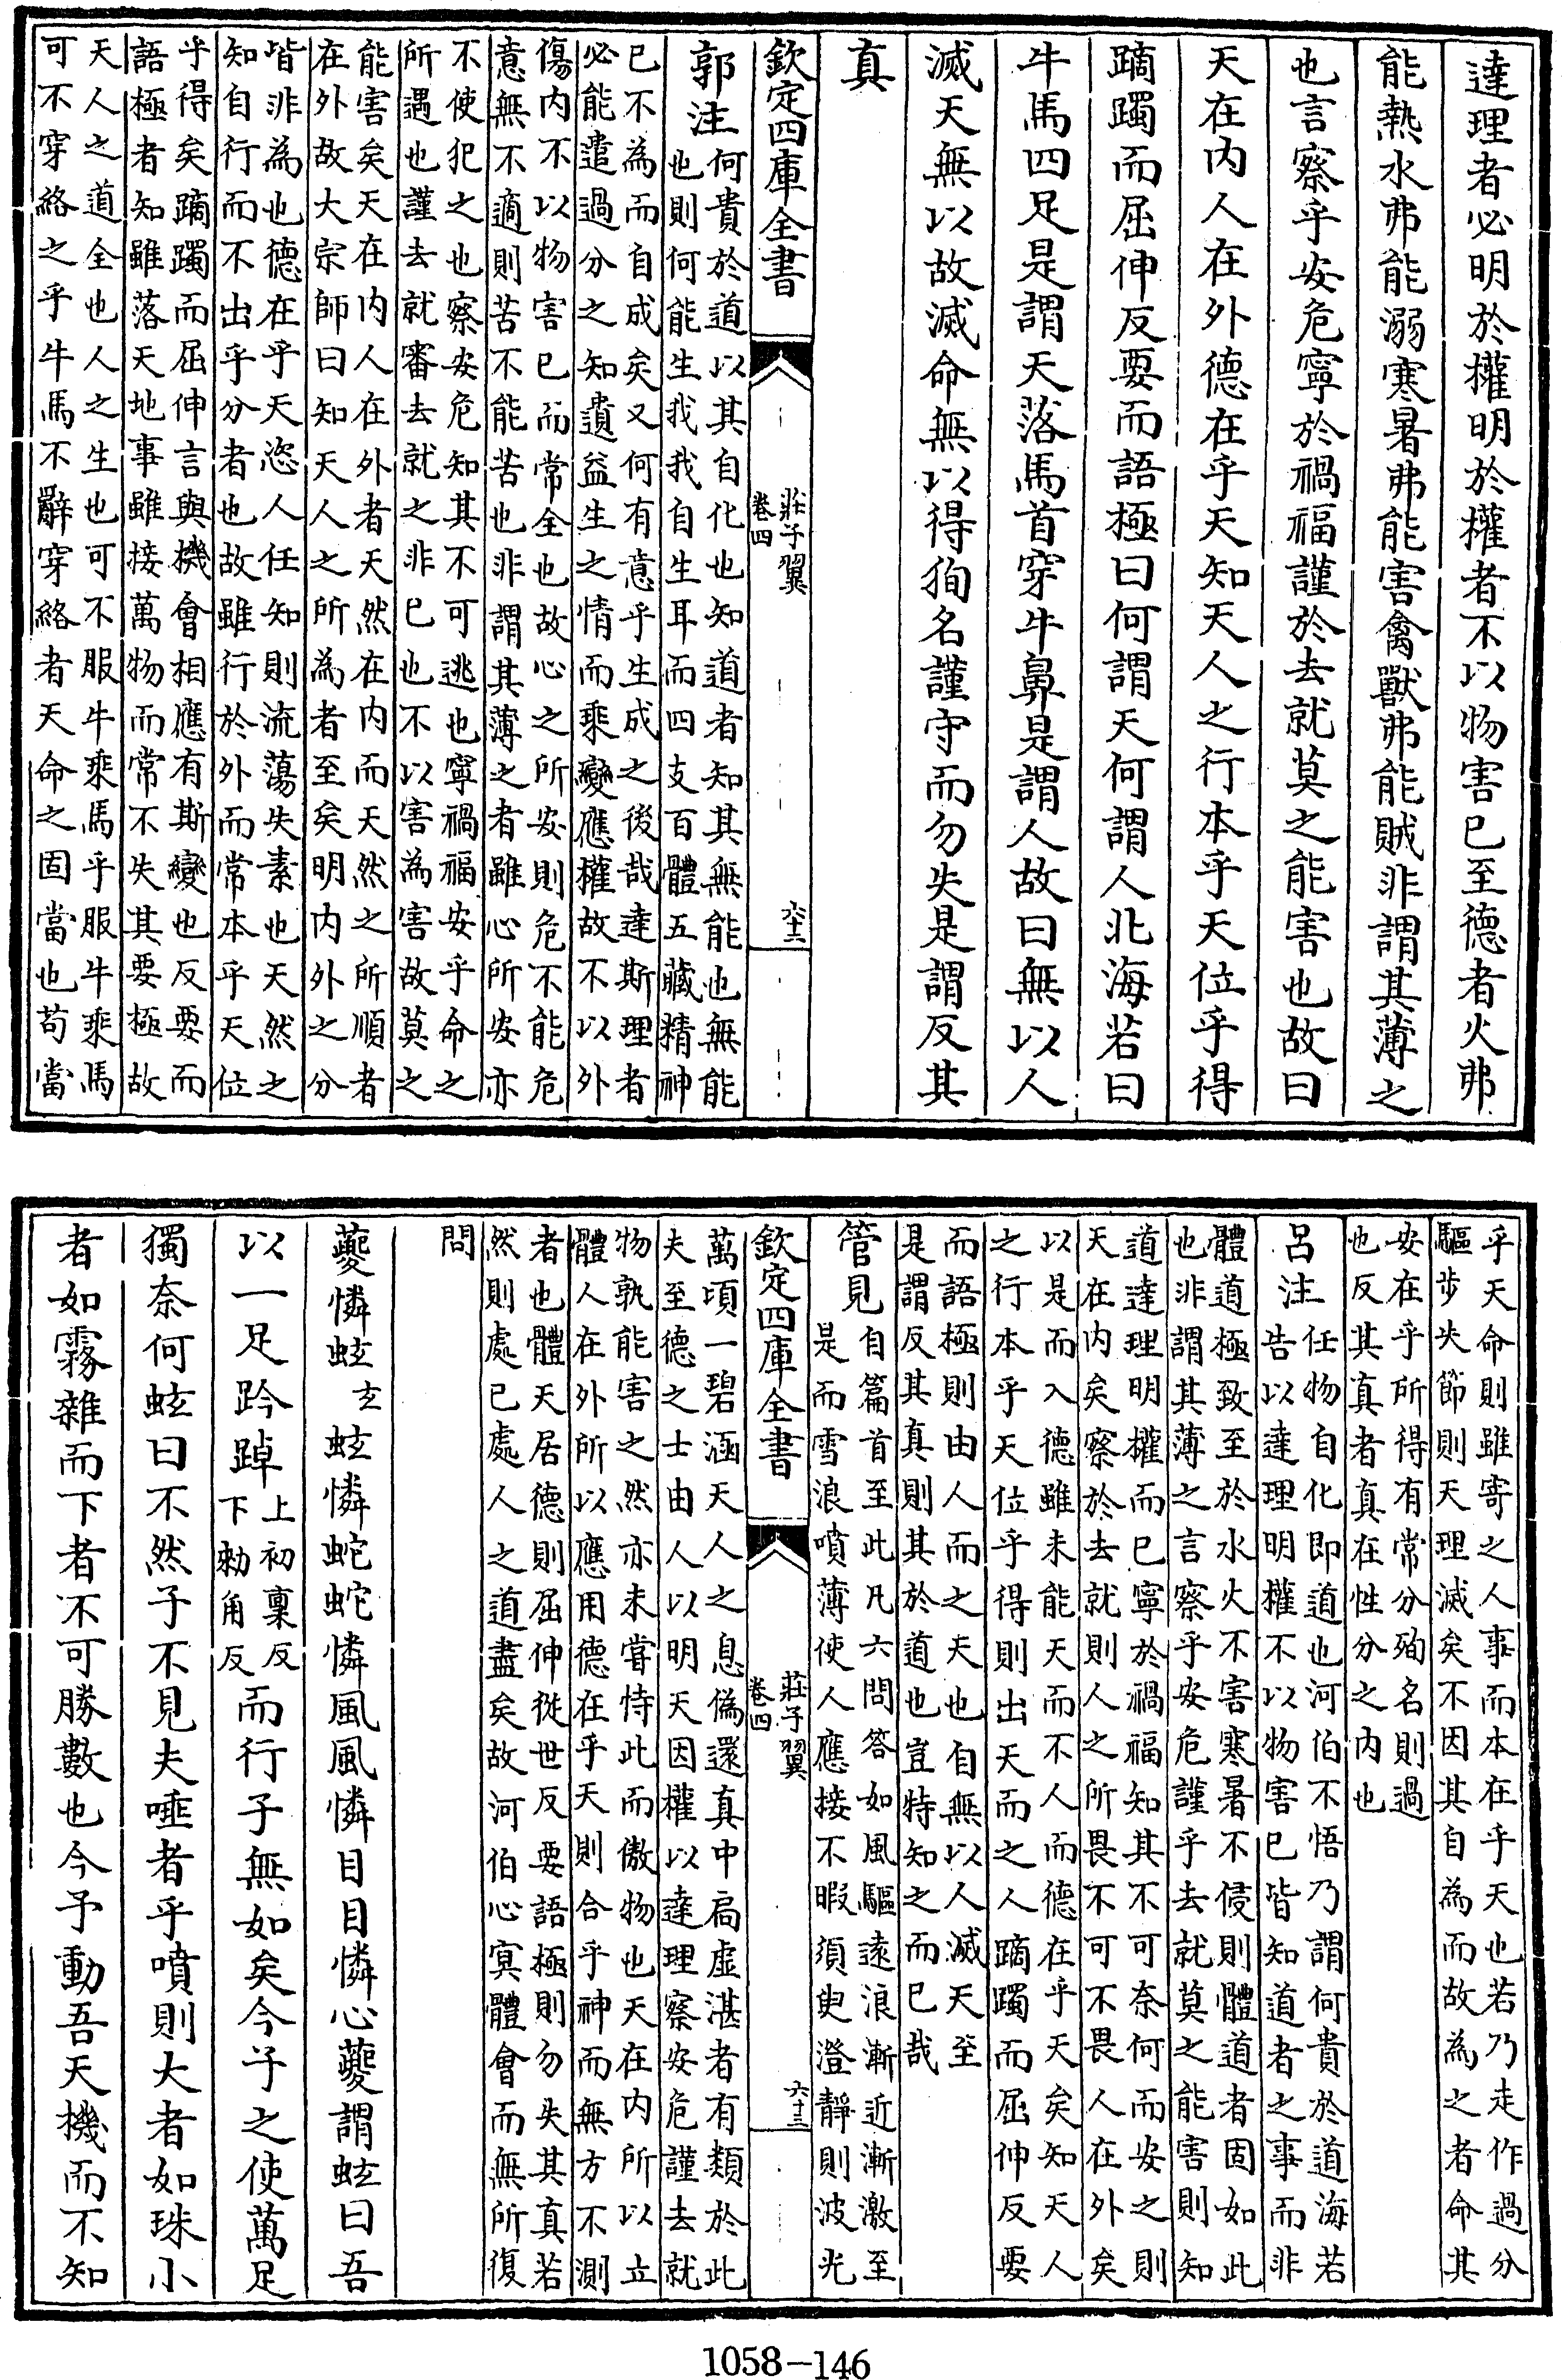 達理者必明於權明於權者不以物害已至德者火弗
能熱水弗能溺寒暑弗能害禽獸弗能賊非謂其薄之
也言察乎安危寧於禍福謹於去就莫之能害也故曰
天在内人在外德在乎天知天人之行本乎天位乎得
蹢躅而屈伸反要而語極曰何謂天何謂人北海若曰
牛馬四足是謂天落馬首穿牛鼻是謂人故曰無以人
滅天無以故滅命無以得殉名謹守而勿失是謂反其
真
欽定四庫全書
莊子翼
卷四
六十二
郭注
何貴於道以其自化也知道者知其無能也無能
也則何能生我我自生耳而四支百體五藏精神
已不為而自成矣又何有意乎生成之後哉達斯理者
必能遣過分之知遺益生之情而乘變應權故不以外
傷内不以物害已而常全也故心之所安則危不能危
意無不適則苦不能苦也非謂其薄之者雖心所安亦
不使犯之也察安危知其不可逃也寧禍福安乎命之
所遇也謹去就審去就之非已也不以害為害故莫之
能害矣天在内人在外者天然在内而天然之所順者
在外故大宗師曰知天人之所為者至矣明内外之分
皆非為也德在乎天恣人任知則流蕩失素也天然之
知自行而不出乎分者也故雖行於外而常本乎天位
乎得矣蹢躅而屈伸言與機會相應有斯變也反要而
語極者知雖落天地事雖接萬物而常不失其要極故
天人之道全也人之生也可不服牛乘馬乎服牛乘馬
可不穿絡之乎牛馬不辭穿絡者天命之固當也苟當
乎天命則雖寄之人事而本在乎天也若乃走作過分
驅步失節則天理滅矣不因其自為而故為之者命其
安在乎所得有常分殉名則過
也反其真者真在性分之内也
呂注
任物自化即道也河伯不悟乃謂何貴於道海若
告以達理明權不以物害已皆知道者之事而非
體道極致至於水火不害寒暑不侵則體道者固如此
也非謂其薄之言察乎安危謹乎去就莫之能害則知
道達理明權而已寧於禍福知其不可奈何而安之則
天在内矣察於去就則人之所畏不可不畏人在外矣
以是而入德雖未能天而不人而德在乎天矣知天人
之行本乎天位乎得則出天而之人蹢躅而屈伸反要
而語極則由人而之天也自無以人滅天至
是謂反其真則其於道也豈特知之而已哉
管見
自篇首至此凡六問答如風驅遠浪漸近漸激至
是而雪浪噴薄使人應接不暇須臾澄靜則波光
欽定四庫全書
莊子翼
卷四
六十三
萬頃一碧涵天人之息偽還真中扃虚湛者有類於此
夫至德之士由人以明天因權以達理察安危謹去就
物孰能害之然亦未嘗恃此而傲物也天在内所以立
體人在外所以應用德在乎天則合乎神而無方不測
者也體天居德則屈伸從世反要語極則勿失其真若
然則處已處人之道盡矣故河伯心㝠體會而無所復
問
夔憐蚿
𤣥
蚿憐蛇蛇憐風風憐目目憐心夔謂蚿曰吾
以一足趻踔
上初稟反
下勑角反
而行予無如矣今子之使萬足
獨奈何蚿曰不然子不見夫唾者乎噴則大者如珠小
者如霧雜而下者不可勝數也今予動吾天機而不知
1058-146